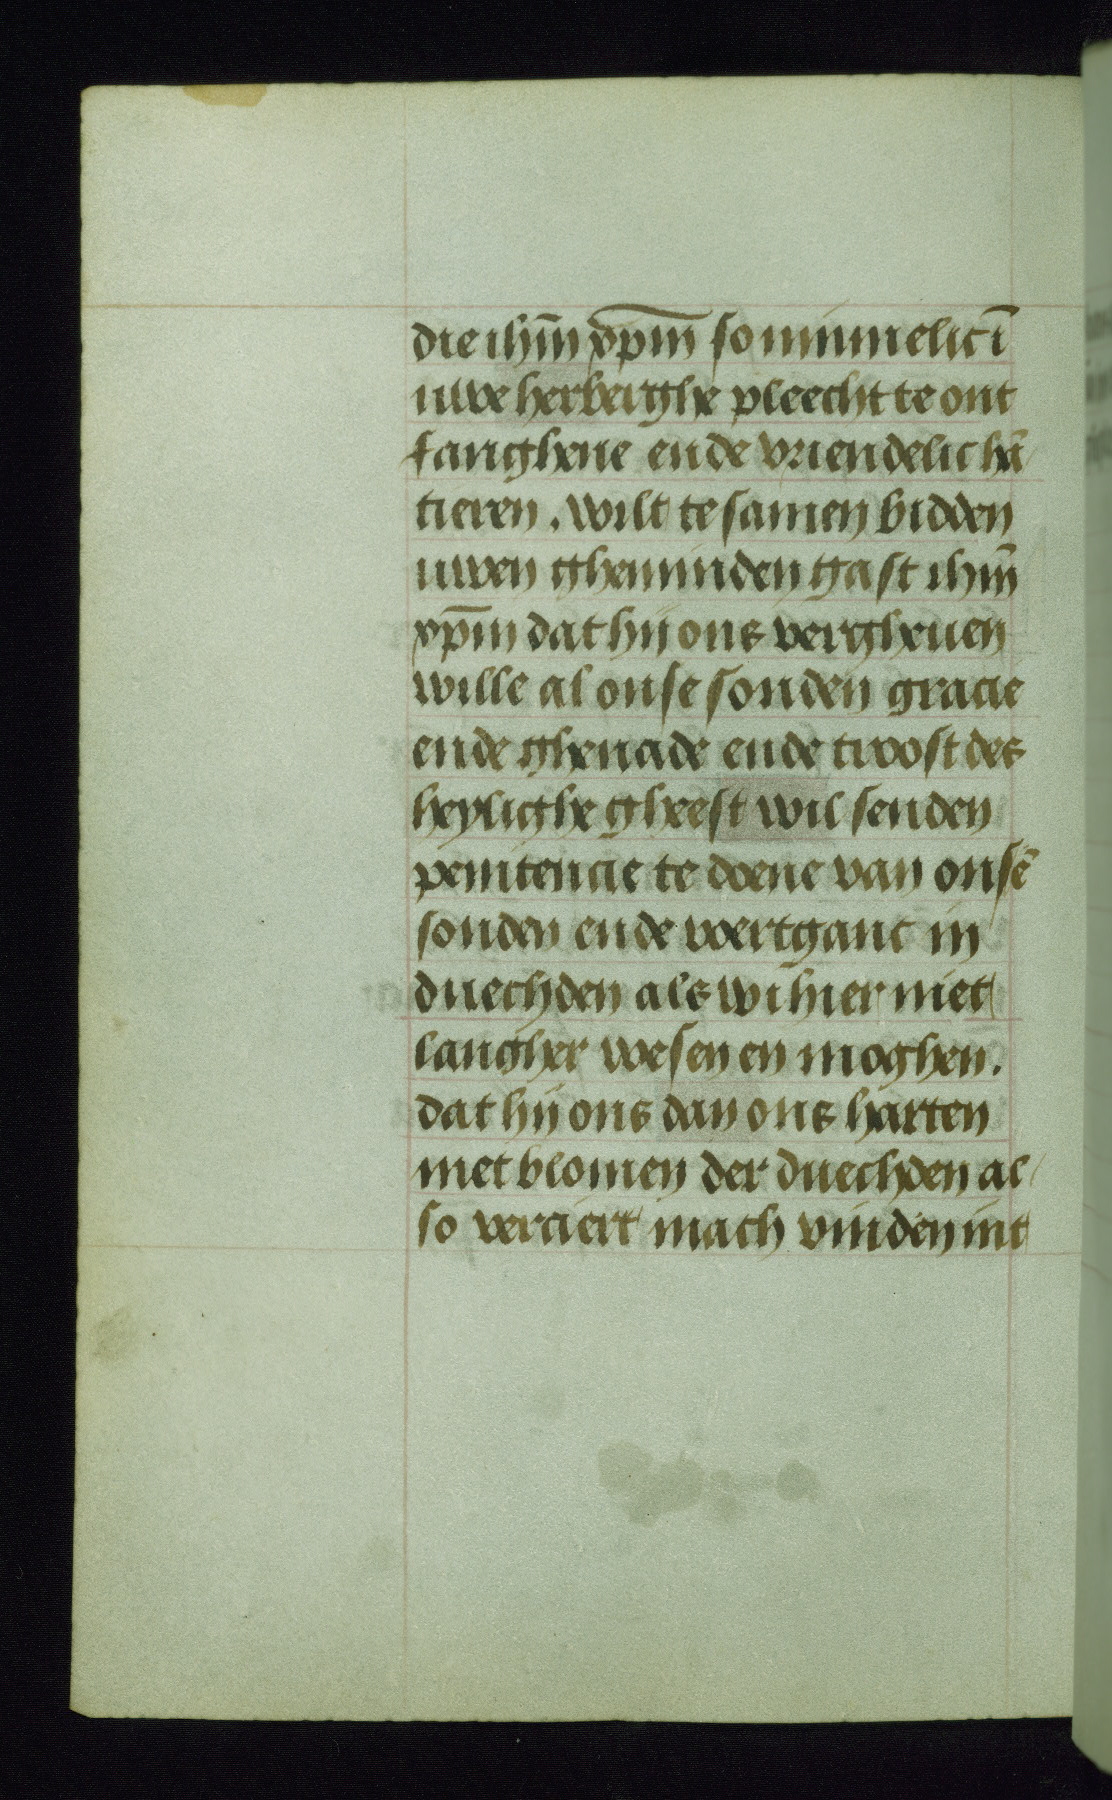 die ihm̄ xp̄m so minnelic ī
uwe herberghe pleecht te ont
fanghene ende vriendelic hā
tieren. wilt te samen bidden
uwen gheminden gast ihm̄
xp̄m dat hij ons vergheuen
wille al onse sonden gracie
ende ghenade ende troost des
heylighe gheest wil senden
penitencie te doene van onsē
sonden ende voertganc in
duechden als wi hier niet
langher wesen en moghen.
dat hij ons dan ons harten
met blomen der duechden al
so verciert mach vinden int